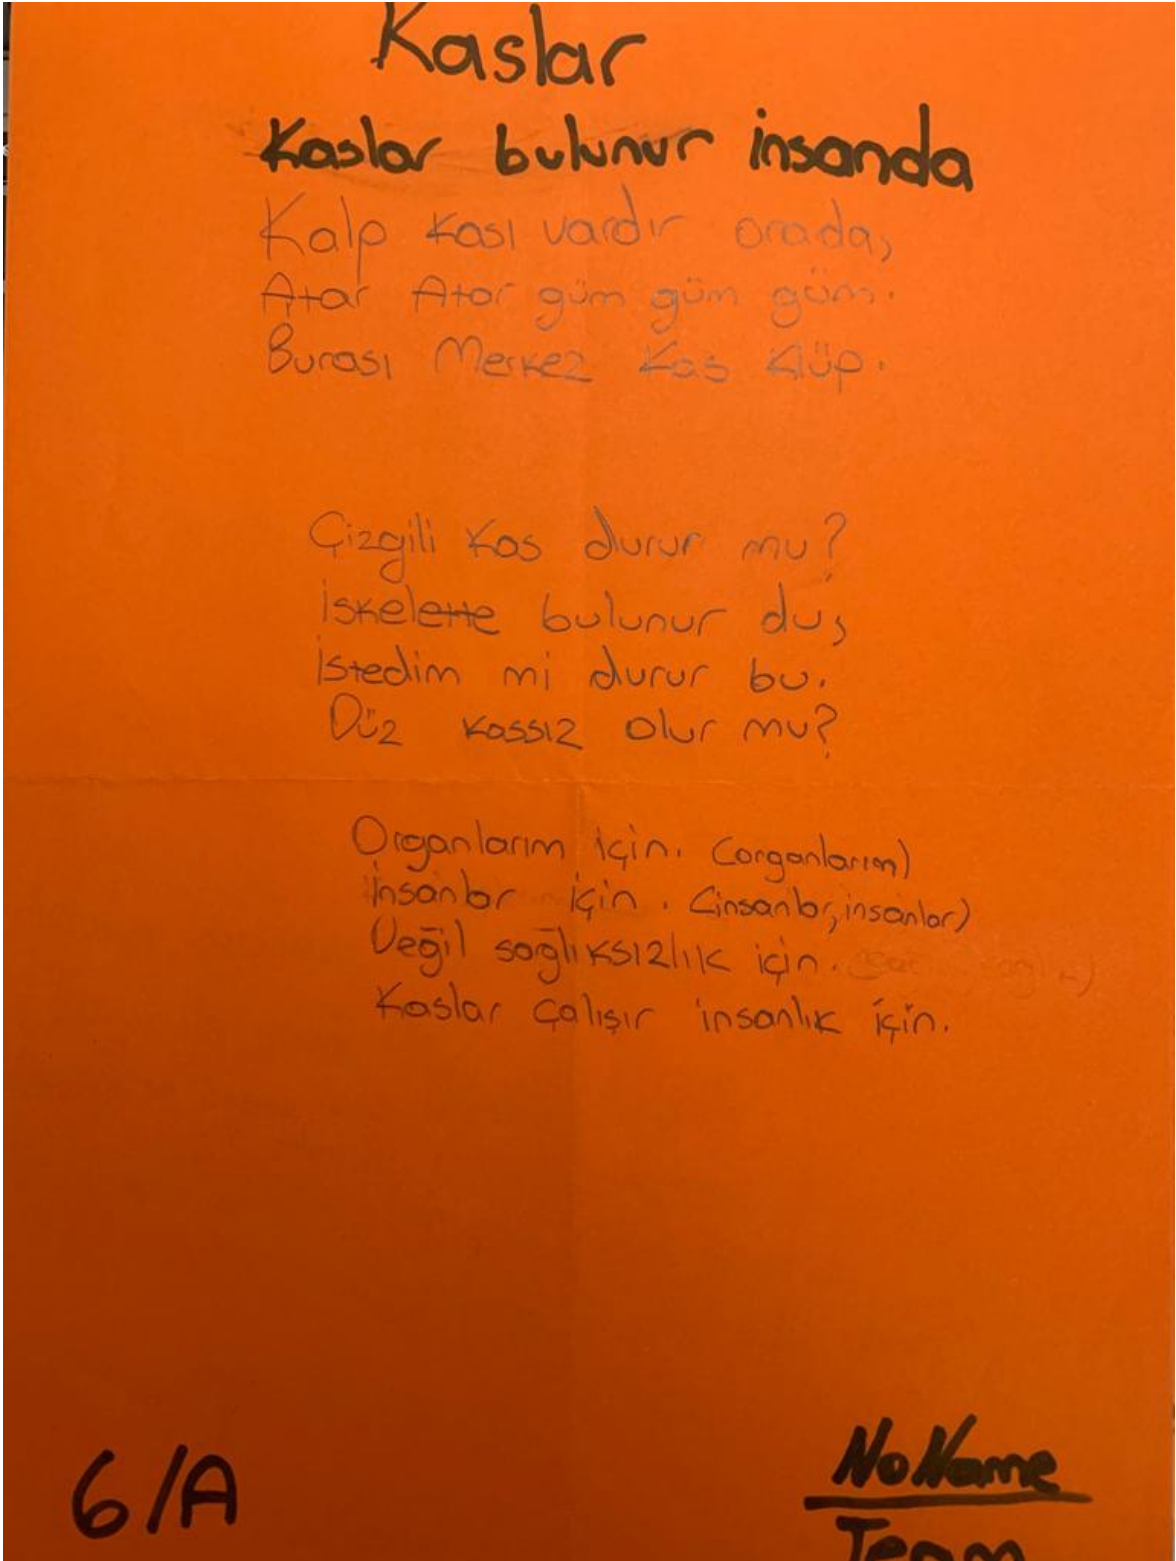 Kaslar
Kaslar bulunur insanda
Kalp kası vardır orada,
Atar Atar güm güm güm.
Burası Merkez Kas Klüp.
Çizgili Kas durur mu?
İskelette bulunur du,
İstedim mi durur bu.
Düz kassız olur mu?
Organlarım için. (organlarım)
İnsanlar için. (insanlar, insanlar)
Değil sağlıksızlık için.
Kaslar çalışır insanlık için.
6/A
NoName
Team